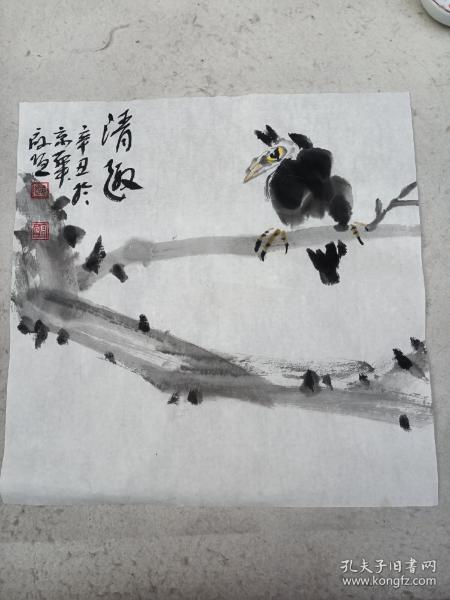 清趣
辛丑于
京華
孔夫子旧书网
www.kongfz.com